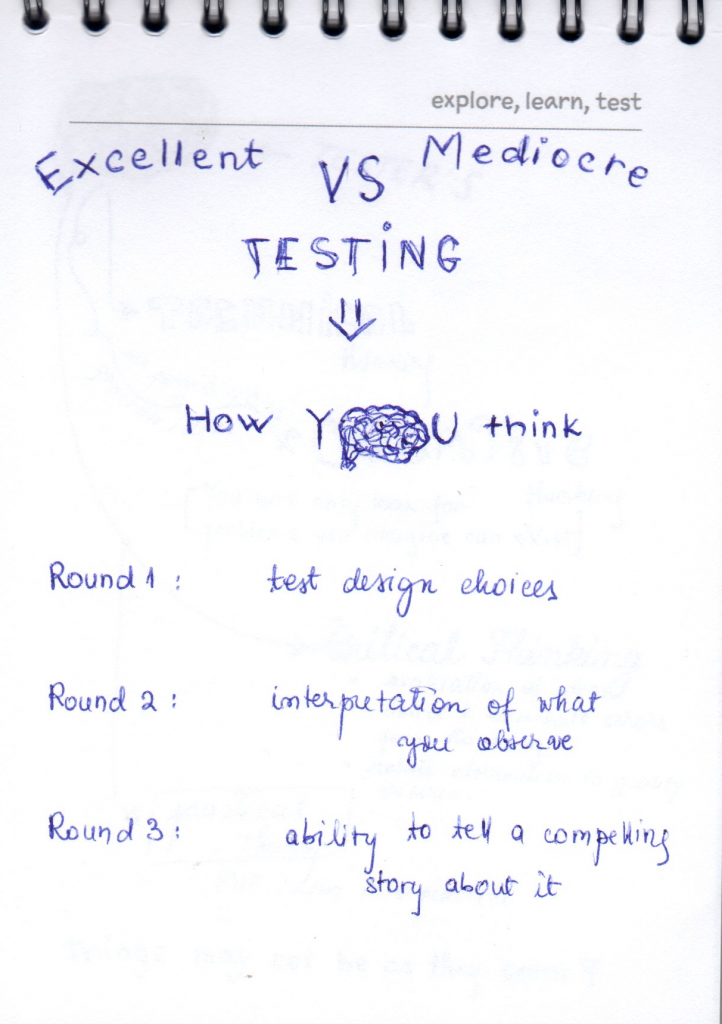 explore, learn, test
Excellent VS Mediocre
TESTING
How YOU think
Round 1 : test design choices
Round 2 : interpretation of what
you observe
Round 3 : ability to tell a compelling
story about it